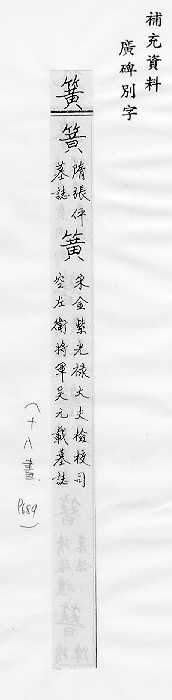 補充資料
廣碑別字
簧
簧
隋張伻
墓誌
簧
宋金紫光祿大夫檢校司
空左衛將軍吴元載墓誌
(十八畫
P.689)